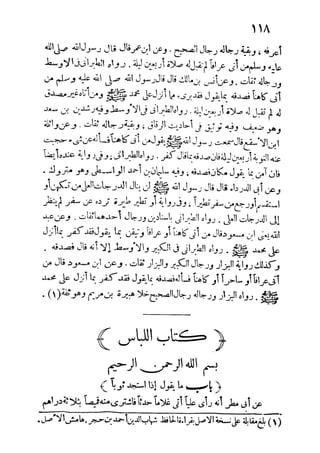 ١١٨
أعرفه، وبقية رجاله رجال الصحيح. وعن ابن عمر قال قال رسول الله صلى الله
عليه وسلم من أتى عرافاً لم تقبل له صلاة أربعين ليلة. رواه الطبرانى فى الأوسط
ورجاله ثقات. وعن أنس بن مالك قال قال رسول الله صلى الله عليه وسلم من
أتى كاهناً فصدقه بما يقول فقد برىء مما أنزل على محمد ﷺ ومن أتاه غير مصدق
له لم تقبل له صلاة أربعين ليلة. رواه الطبرانى فى الأوسط وفيه رشدين بن سعد
وهو ضعيف وفيه توثيق فى أحاديث الرقاق، وبقية رجاله ثقات. وعن واثلة
ابن الأسقع قال سمعت رسول الله ﷺ يقول من أتى كاهناً فسأله عن شىء حجبت
عنه التوبة أربعين ليلة فان صدقه بما قال كفر. رواه الطبرانى. وفى رواية عنده أيضاً
فان آمن بما يقول مكان فصدقه، وفيه سليمان بن أحمد الواسطى وهو متروك.
وعن أبى الدرداء قال قال رسول الله ﷺ لن ينال الدرجات العلى من تكهن أو
استقسم أو رجع من سفر تطيراً، وفى رواية أو تطير طيرة ترده عن سفر لم ينظر
إلى الدرجات العلى. رواه الطبرانى باسنادين ورجال أحدهما ثقات. وعن عبد
الله يعنى ابن مسعود قال من أتى كاهناً أو عرافاً وتيقن بما يقول فقد كفر بما أنزل
على محمد ﷺ. رواه الطبرانى فى الكبير والأوسط إلا أنه قال فصدقه.
وكذلك رواية البزار ورجال الكبير والبزار ثقات. وعن ابن مسعود قال من
أتى عرافاً أو ساحراً أو كاهناً فسأله فصدقه بما يقول فقد كفر بما أنزل على محمد
ﷺ. رواه البزار ورجاله رجال الصحيح خلا هبيرة بن مريم وهو ثقة (١).
﴿ كتاب اللباس ﴾
بسم الله الرحمن الرحيم
﴿ باب ما يقول إذا استجد ثوباً ﴾
عن أبى مطر أنه رأى علياً أتى غلاماً حدثاً فاشترى منه قميصاً بثلاثة دراهم
(١) بلغ مقابلة على نسخة الأصل بقراءة الحافظ شهاب الدين أحمد بن حجر. هامش الأصل.